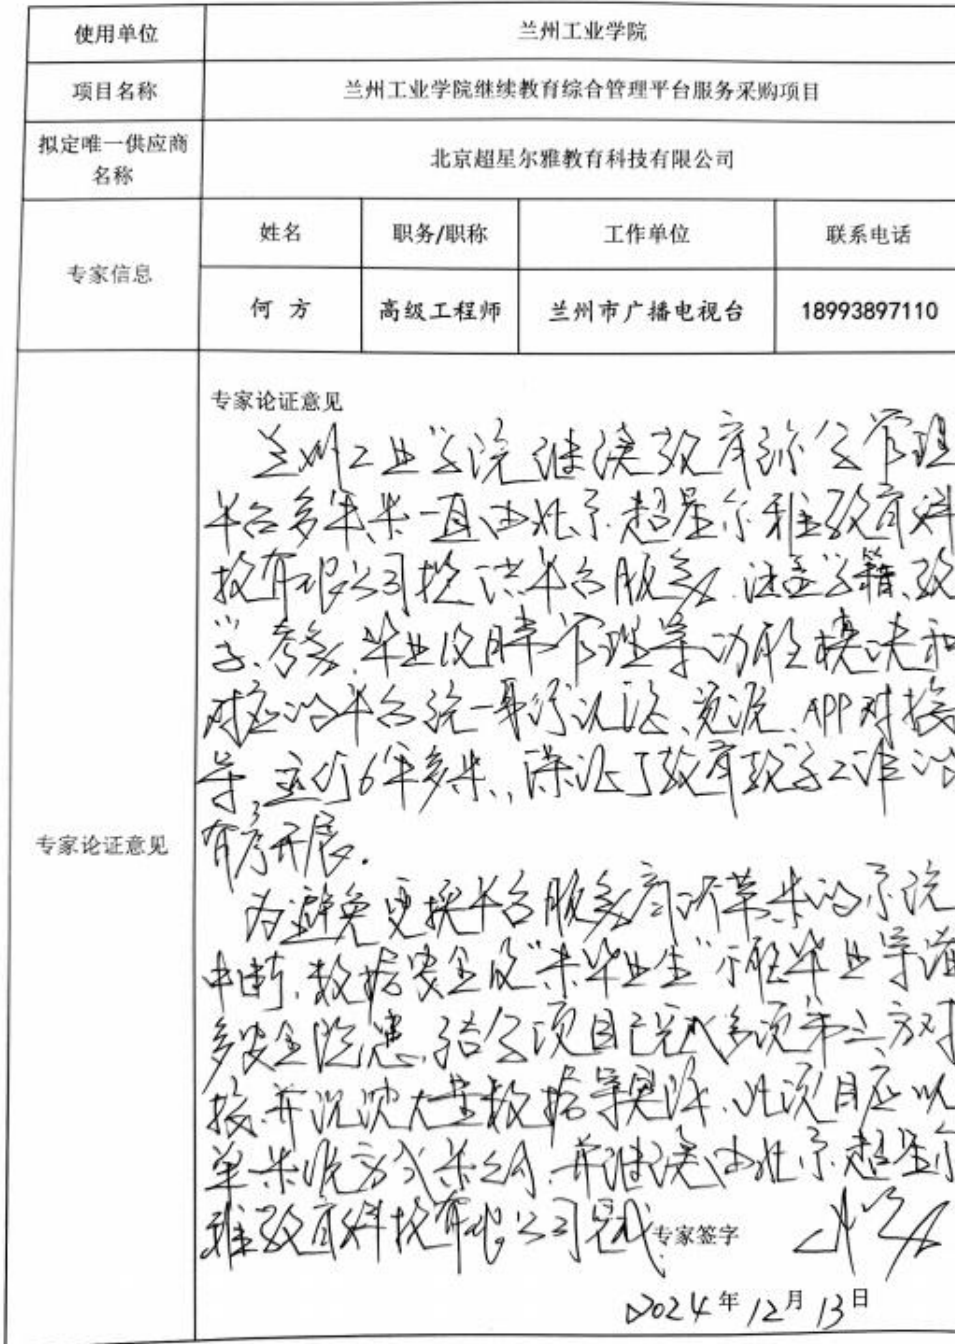 使用单位 兰州工业学院
项目名称 兰州工业学院继续教育综合管理平台服务采购项目
拟定唯一供应商名称 北京超星尔雅教育科技有限公司
专家信息 姓名 职务/职称 工作单位 联系电话
何方 高级工程师 兰州市广播电视台 18993897110
专家论证意见
专家论证意见
兰州工业学院继续教育综合管理
平台多年来一直由北京超星尔雅教育科
技有限公司提供平台服务,涵盖学籍、教
学、考务、毕业设计管理等功能模块和
对应的平台统一身份认证、资源、APP对接
等,运行6年多来,保证了教育教学工作的
有序开展.
为避免更换平台服务商所带来的系统
中断,数据安全及"未毕业生"不能毕业等诸
多安全隐患,结合项目已完成多项第三方对
接,并沉淀大量数据等具体,此项目应以
单一来源方式采购,并继续由北京超星尔
雅教育科技有限公司完成.
专家签字
2024年12月13日